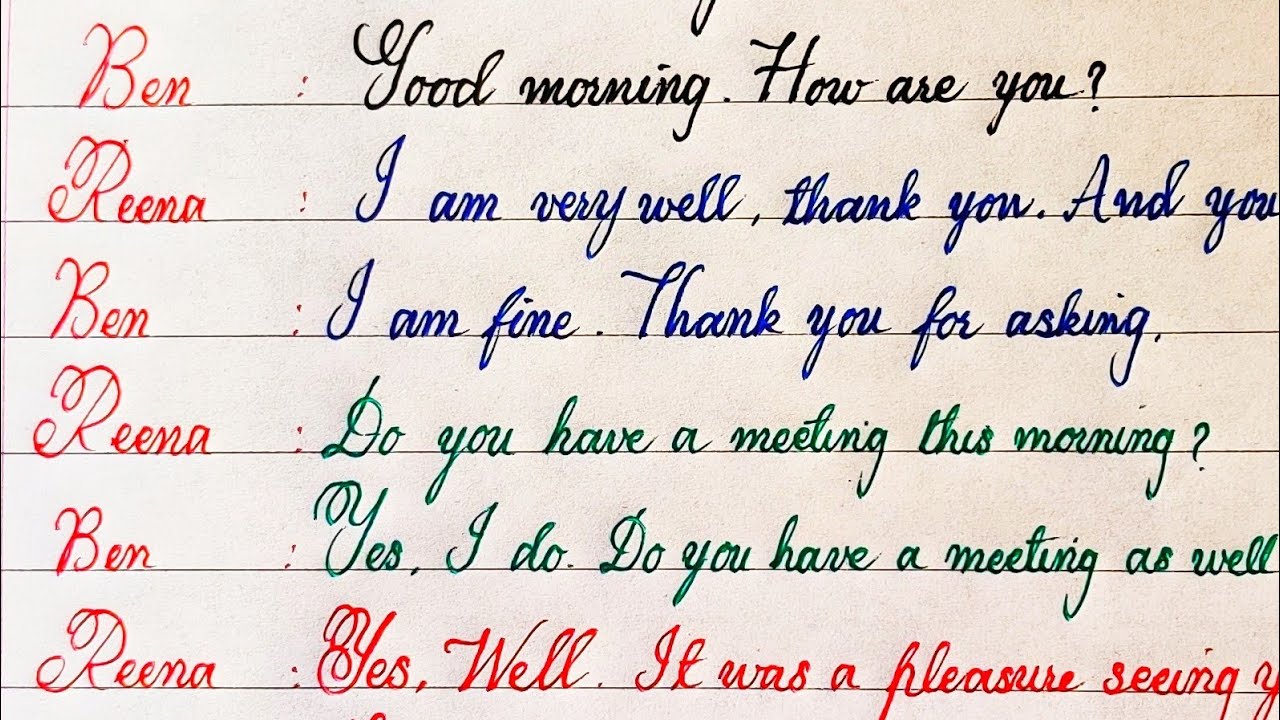 Ben : Good morning. How are you?
Reena : I am very well, thank you. And you
Ben : I am fine. Thank you for asking.
Reena : Do you have a meeting this morning?
Ben : Yes, I do. Do you have a meeting as well
Reena : Yes, Well. It was a pleasure seeing y